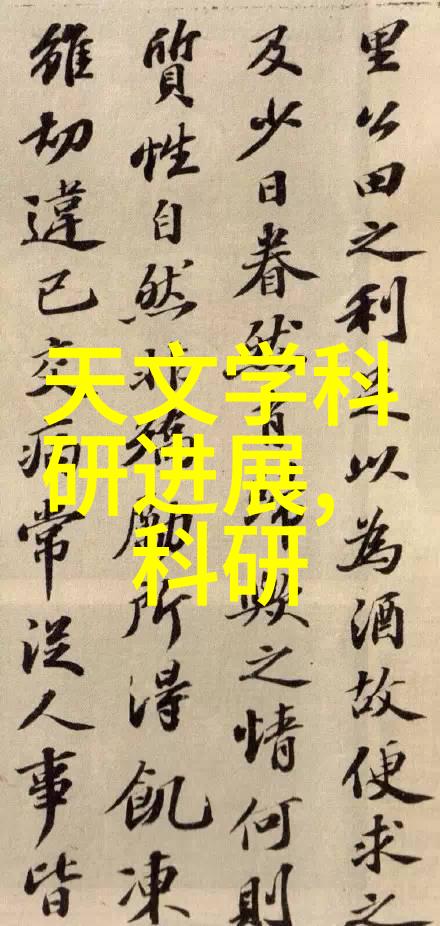 天文学科
研进展,
科研
里公田之利足以為酒故便求之
及少日眷然有歸歟之情何則
質性自然非矯勵所得飢凍
雖切違已交病常從人事皆